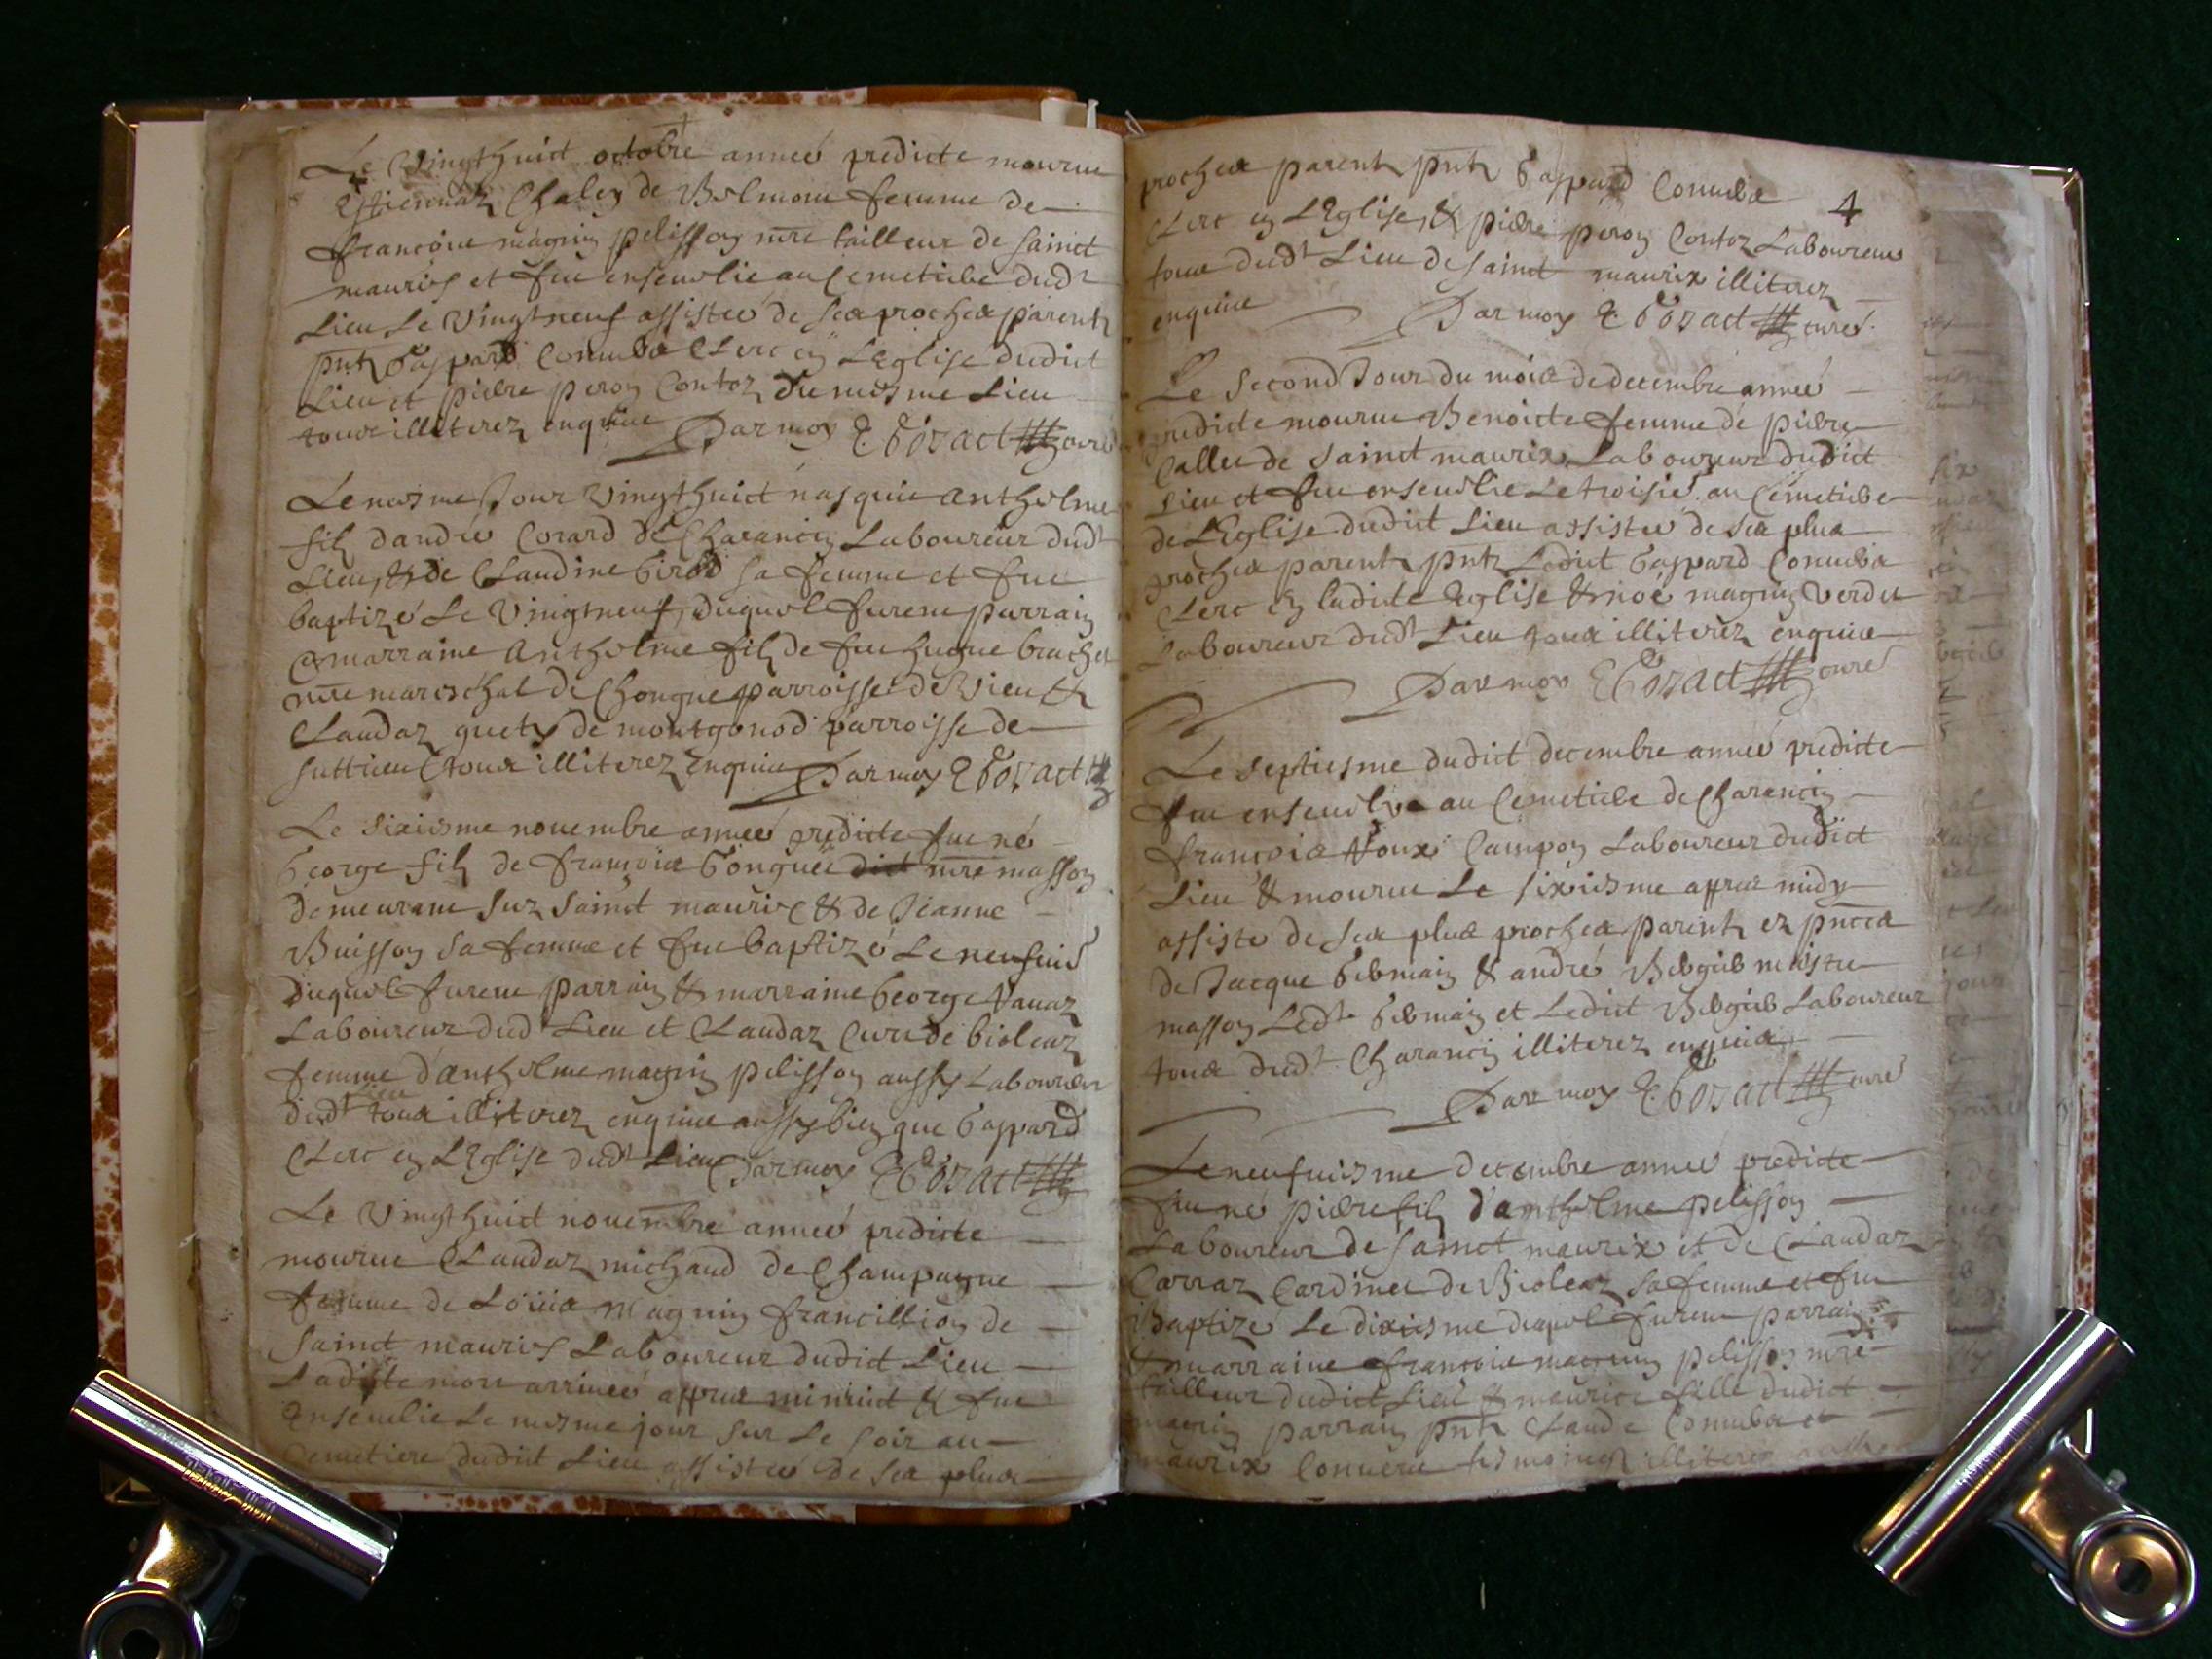 Le Vingthuict octobre anneé predicte mourut
Estiennaz Chaley de Belmont femme de
francoise magnin pelisson mre tailleur de sainct
mauris et fut enseuelie au Cemetiere dudt
Lieu Le Vingtneuf assisteé de ses proches parentz
pntz Gaspard Clerc en LEglise dudict
Lieu et pierre peron Contoz du mesme Lieu
tous illiterez enquis Par moy curé
Le mesme Jour Vingthuict nasquit Anthelme
filz dandré Corard de Charancin Laboureur dudt
Lieu, & de Claudine Girod sa femme et fut
baptizé Le Vingtneuf, duquel furent parrain
& marraine Anthelme filz de fut hugue brachet
mre mareschal de Chongne parroisse de Vieu &
Claudaz guety de montgonod parroisse de
suttrieu tous illiterez Enquis Par moy
Le sixiesme nouembre anneé predicte fut né
George filz de francois mre masson
demeurant sur sainct mauris & de Jeanne
Buisson sa femme et fut baptizé Le neufuié
duquel furent parrain & marraine George
Laboureur dudt Lieu et Claudaz de bioleaz
femme d'anthelme magnin pelisson aussy Laboureur
dudt lieu tous illiterez enquis aussy bien que Gaspard
Clerc en LEglise dudt Lieu Par moy
Le Vingthuict nouembre anneé predicte
mourut Claudaz michaud de Champagne
femme de Loüis Magnin francillion de
sainct mauris Laboureur dudict Lieu
Ladicte mort arriueé appres minuict & fut
enseuelie Le mesme jour sur Le soir au
Cemetiere dudict Lieu assisteé de ses plus
proches parentz pntz Gaspard
4
Clerc en LEglise, & pierre peron Contoz Laboureurs
tous dudt Lieu de sainct maurix illiterez
enquis Par moy curé
Le second Jour du mois de decembre anneé
predicte mourut Benoicte femme de pierre
Callet de sainct maurix Laboureur dudict
Lieu et fut enseuelie Le troisié au Cemetiere
de LEglise dudict Lieu assisteé de ses plus
proches parentz pntz Ledict Gaspard
Clerc en ladicte Eglise & noé magnin Verdet
Laboureur dudt Lieu tous illiterez enquis
Par moy curé
Le septiesme dudict decembre anneé predicte
fut enseuely au Cemetiere de Charancin
francois Roux Campon Laboureur dudict
Lieu & mourut Le sixiesme appres midy
assisté de ses plus proches parentz ez pnces
de Jacque Germain & andré Bergier maistre
masson Ledt Germain et Ledict Bergier Laboureur
tous dudt Charancin illiterez enquis
Par moy curé
Le neufuiesme decembre anneé predicte
fut né pierre filz d'anthelme pelisson
Laboureur de sainct maurix et de Claudaz
Carraz Cardinet de Bioleaz sa femme et fut
Baptizé Le dixiesme duquel furent parrain
& marraine francois magnin pelisson mre
tailleur dudict Lieu & maurice fille dudict
magnin parrain pntz Claude et
maurix illiterez